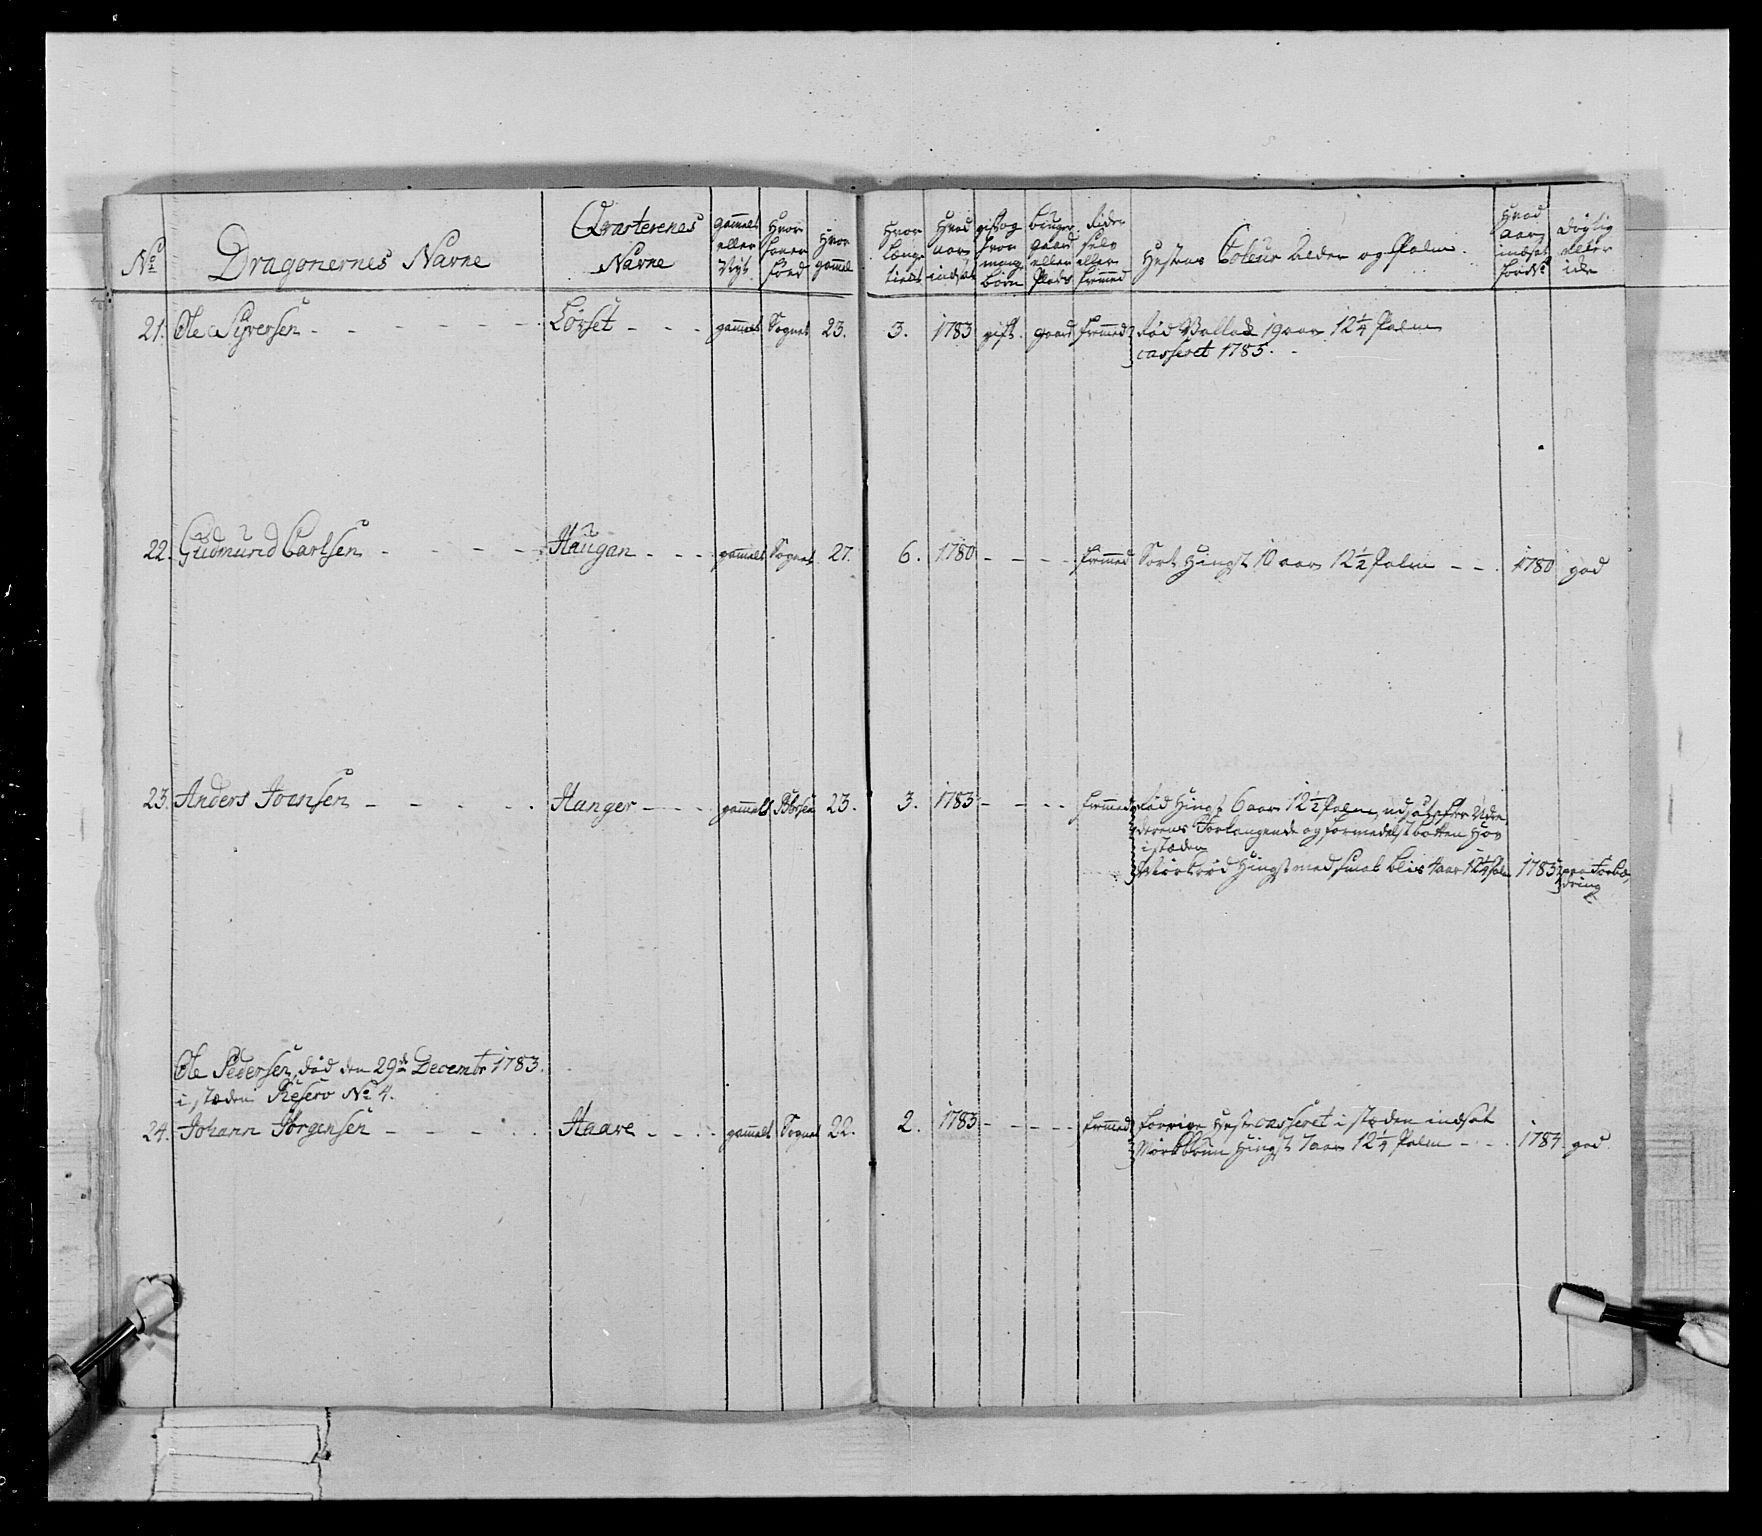 No
Dragonernes Navne
Qvarterenes Navne
gammelt eller Nÿt
Hvor hand er fœd
Hvor gammel
Hvor længe tient
Hvad aar indsat
gift og hvor mange børn
bruger gaard eller Plads
Rider selv eller fremmed
Hestens Coleur Alder og Palm.
Hvad aar indsat
Dÿgtig eller icke
21. Ole Siversen - - - - - - - Lörset - - - gammelt Sognet 23. 3. 1783 gift. gaard fremmed Rød Vallak 19 aar 12 1/4 Palm
casseret 1785. -
22. Gudmund Carlsen - - - - - Haugan - - - gammelt Sognet 27. 6. 1780 - - - - fremmed Sort Hingst 10 aar 12 1/2 Palm - - . 1780 god
23. Anders Joensen - - - - - Hanger - - - - gammelt Börsen 23. 3. 1783 - - - - fremmed Rød Hingst 6 aar 12 1/2 Palm, udsat efter
Forlangende og formedelst Hov
i stæden
Mörkrød Hingst med smal blis 4 aar 12 1/4 Palm 1785 paa Forbe-
dring
Ole Pedersen, död den 29de Decembr 1783.
i stæden Reserv No 4.
24. Johann Jörgensen - - - - . Haare - - - . gammelt Sognet 22. 2. 1783 - - - - - fremmed forrige Hest casseret i stæden indsat
Mörkbrun Hingst 7 aar 12 1/4 Palm - - - . 1784 god.